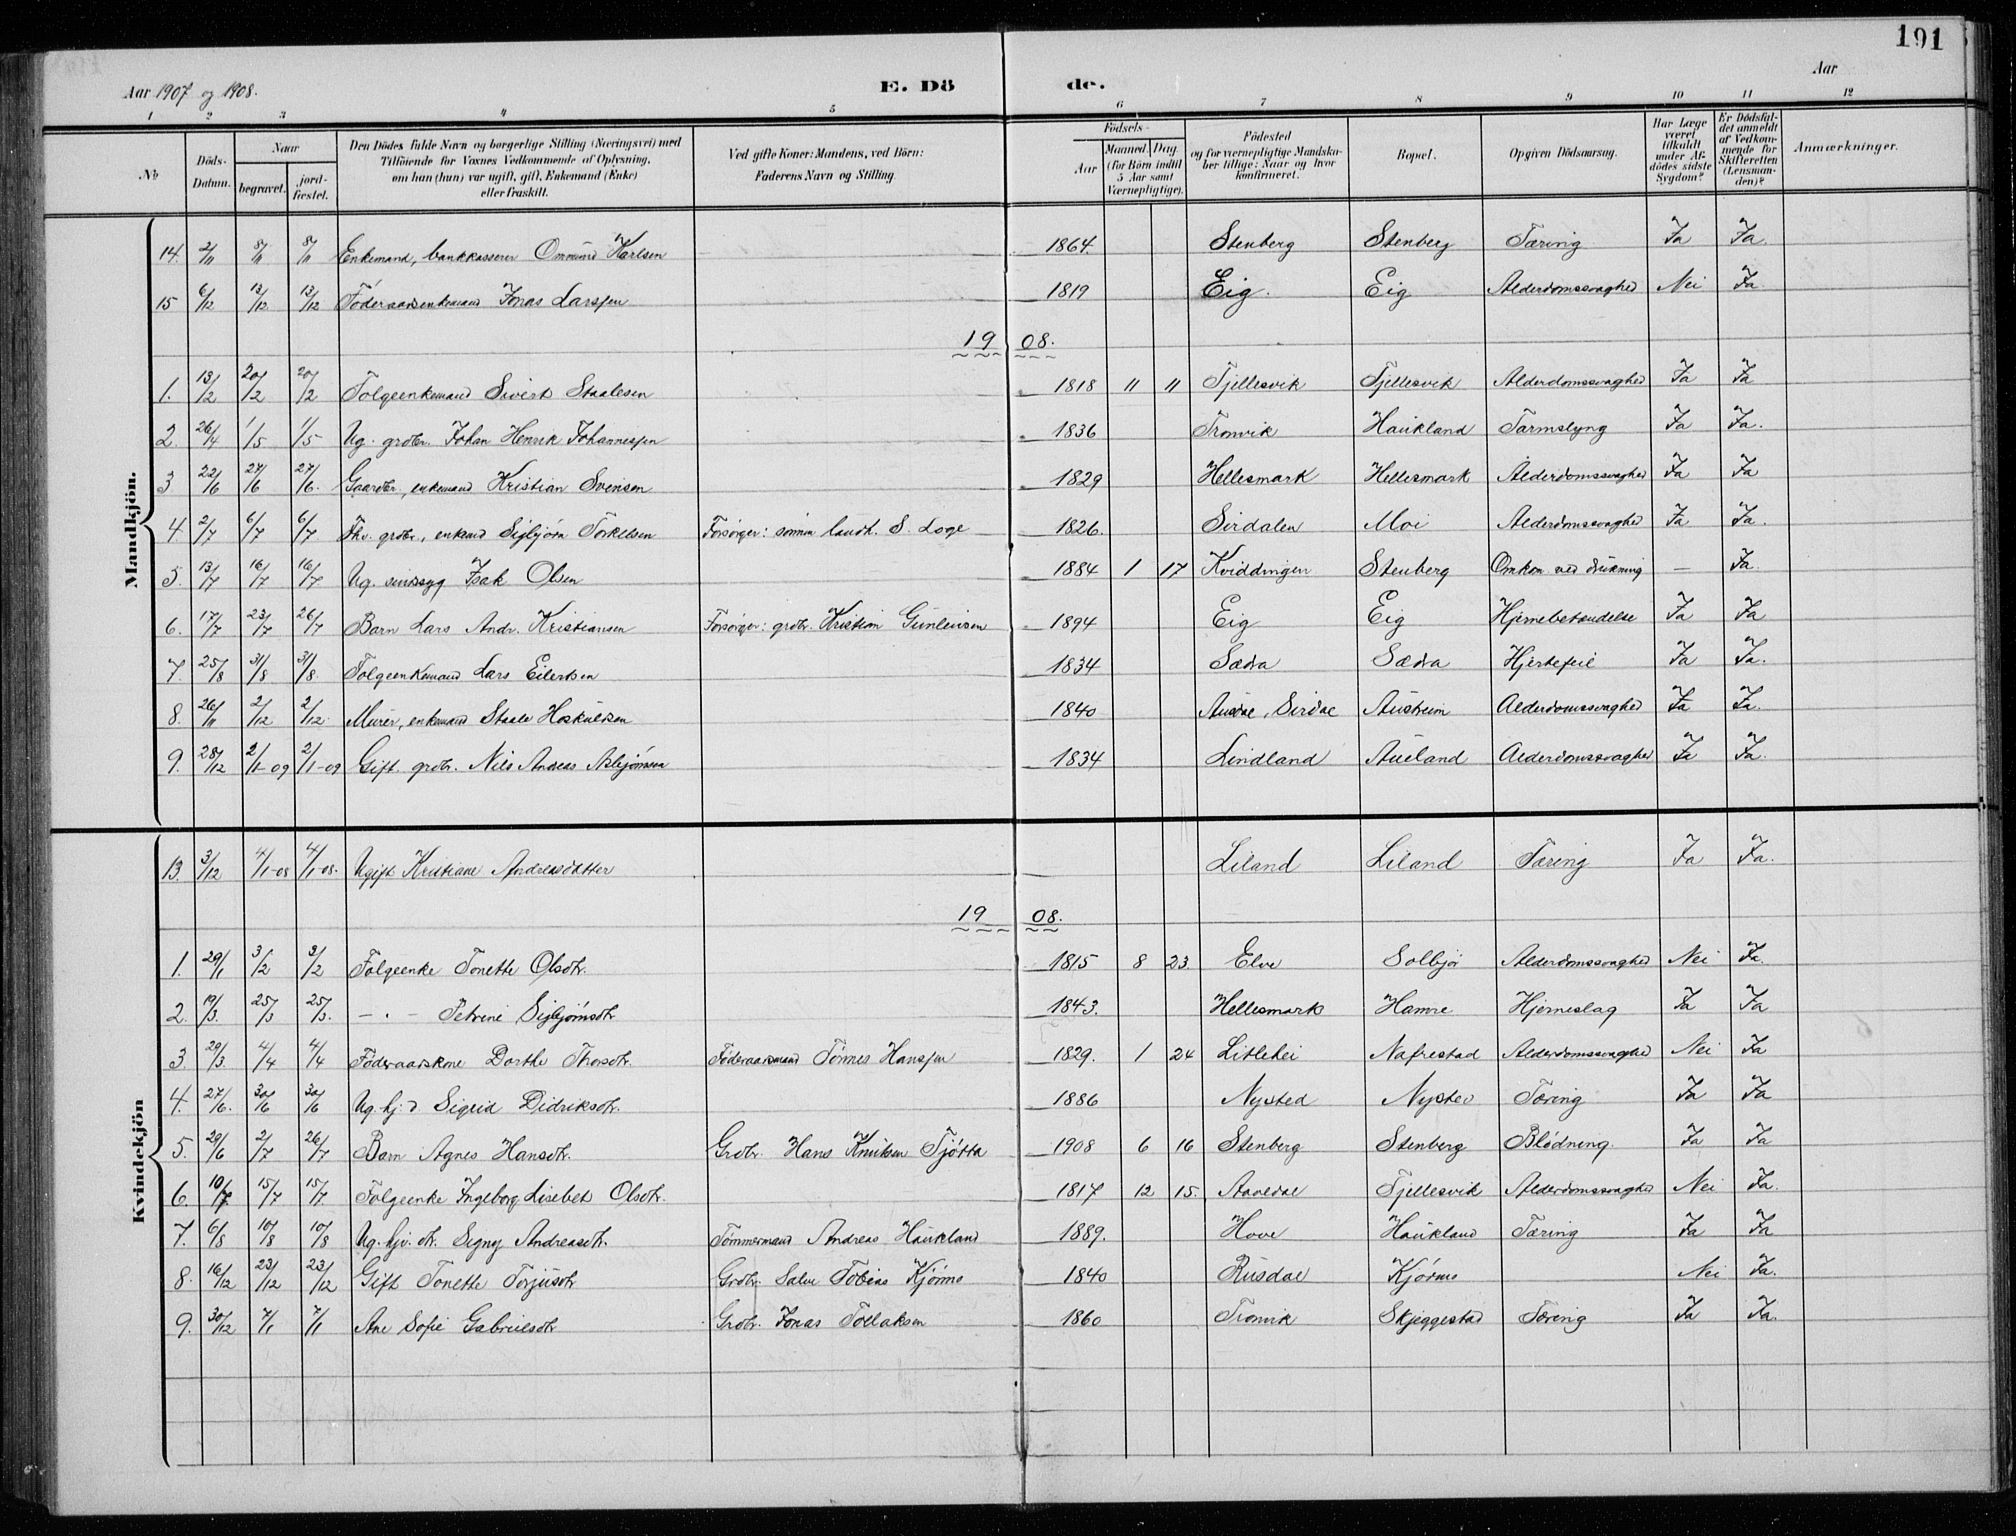 191
Aar 1907 og 1908.
E. Dö de.
Aar
1 2 3 4 5 6 7 8 9 10 11 12
No
Döds-Datum.
Naar
begravet.
jordfæstet.
Den Dödes fulde Navn og borgerlige Stilling (Næringsvei) med Tilföiende for Voxnes Vedkommende af Oplysning, om han (hun) var ugift, gift, Enkemand (Enke) eller fraskilt.
Ved gifte Koner: Mandens, ved Börn: Faderens Navn og Stilling.
Födsels-
Aar
Maaned. Dag.
(for Börn indtil 5 Aar samt Værnepligtige).
Födested og for værnepligtige Mandskaber tillige: Naar og hvor konfirmeret.
Bopæl.
Opgiven Dödsaarsag.
Har Læge været tilkaldt under Afdödes sidste Sygdom?
Er Dödsfaldet anmeldt af Vedkommende for Skifteretten (Lensmanden)?
Anmærkninger.
Mandkjön.
14. 2/11 8/11 8/11 Enkemand, bankkasserer Ommund Karlsen 1864. Stenberg Stenberg Tæring Ja Ja.
15 6/12 13/12 13/12 Föderaadsenkemand Jonas Larssen 1819 Eig. Eig Alderdomssvaghed Nei Ja.
19 08.
1. 13/2 20/2 20/2 Folgeenkemand Sivert Staalesen 1818 11 11 Fjellesvik Fjellesvik Alderdomssvaghed Ja Ja
2. 26/4 1/5 1/5 Ug. grdbr. Johan Henrik Johannessen 1836 Tronvik Haukland Tarmslyng Ja Ja.
3 22/6 27/6 27/6. Gaardbr., enkemand Kristian Svensen 1829 Hellesmark Hellesmark Alderdomssvaghed Ja Ja
4 2/7 6/7 6/7 Fhv. grdbr., enkemd Sigbjörn Torkelsen Forsörger: sönnen landh. S. Loge 1826. Sirdalen Moi Alderdomssvaghed Ja Ja.
5. 13/7 16/7 16/7 Ug. sindssyg Isak Olsen 1884 1 17 Kviddingen Stenberg Omkom. ved drukning — Ja.
6. 17/7 23/7 26/7 Barn Lars Andr. Kristiansen Forsörger: grdbr. Kristian Gunleiksen 1894 Eig Eig Hjernebetændelse Ja Ja
7 25/8 31/8 31/8. Folgeenkemand Lars Eilertsen 1834 Sædra Sædra Hjertefeil Ja Ja.
8. 26/11 2/12 2/12. Murer, enkemand Staale Hoskuldsen 1840 Ausdal, Sirdal Austreim Alderdomssvaghed Ja Ja.
9. 28/12 2/1-09 2/1-09 Gift. grdbr. Nils Andreas Asbjörnsen 1834 Lindland Aueland Alderdomssvaghed Ja Ja.
Kvindekjön
13. 3/12 4/1-08 4/1-08. Ugift Kristiane Andreasdatter Liland Liland Tæring Ja Ja.
19 08.
1. 29/1 3/2 3/2 Folgeenke Tonette Olsdtr. 1815 8 23. Elve Solbjör Alderdomssvaghed Nei Ja.
2. 19/3. 25/3 25/3. — " — Petrine Sigbjörnsdtr 1843. Hellesmark Hamre Hjerneslag Ja Ja
3. 29/3. 4/4 4/4 Föderaadskone Dorthe Thorsdtr. Föderaadsmand Tönnes Hanssen 1829. 1 24 Litlehei Nafrestad Alderdomssvaghed Nei Ja
4. 27/6. 30/6 30/6 Ug. hj. d Sigrid Didriksdtr. 1886 Nysted Nysted Tæring Ja Ja
5. 29/6 2/7 26/7 Barn Agnes Hansdtr. Grdbr. Hans Knutsen Tjötta 1908 6 16 Stenberg Stenberg Blödning. Ja Ja
6. 10/7 15/7 15/7. Folgeenke Ingeborg Lisebet Olsdtr. 1817 12 15. Aavedal Fjellesvik Alderdomssvaghed Nei Ja.
7. 6/8 10/8 10/8 Ug. hjv. dtr. Signy Andreasdtr. Tömmermand Andreas Haukland 1889. Hove Haukland Tæring Ja Ja
8. 16/12 23/12 23/12 Gift Tonette Torjusdtr Grdbr. Salve Tobias Kjörmo 1840 Rusdal Kjörmo Nei Ja.
9. 30/12 7/1 7/1 Ane Sofie Gabrielsdtr Grdbr. Jonas Tollaksen 1860 Tronvik Skjeggestad Tæring Ja Ja.